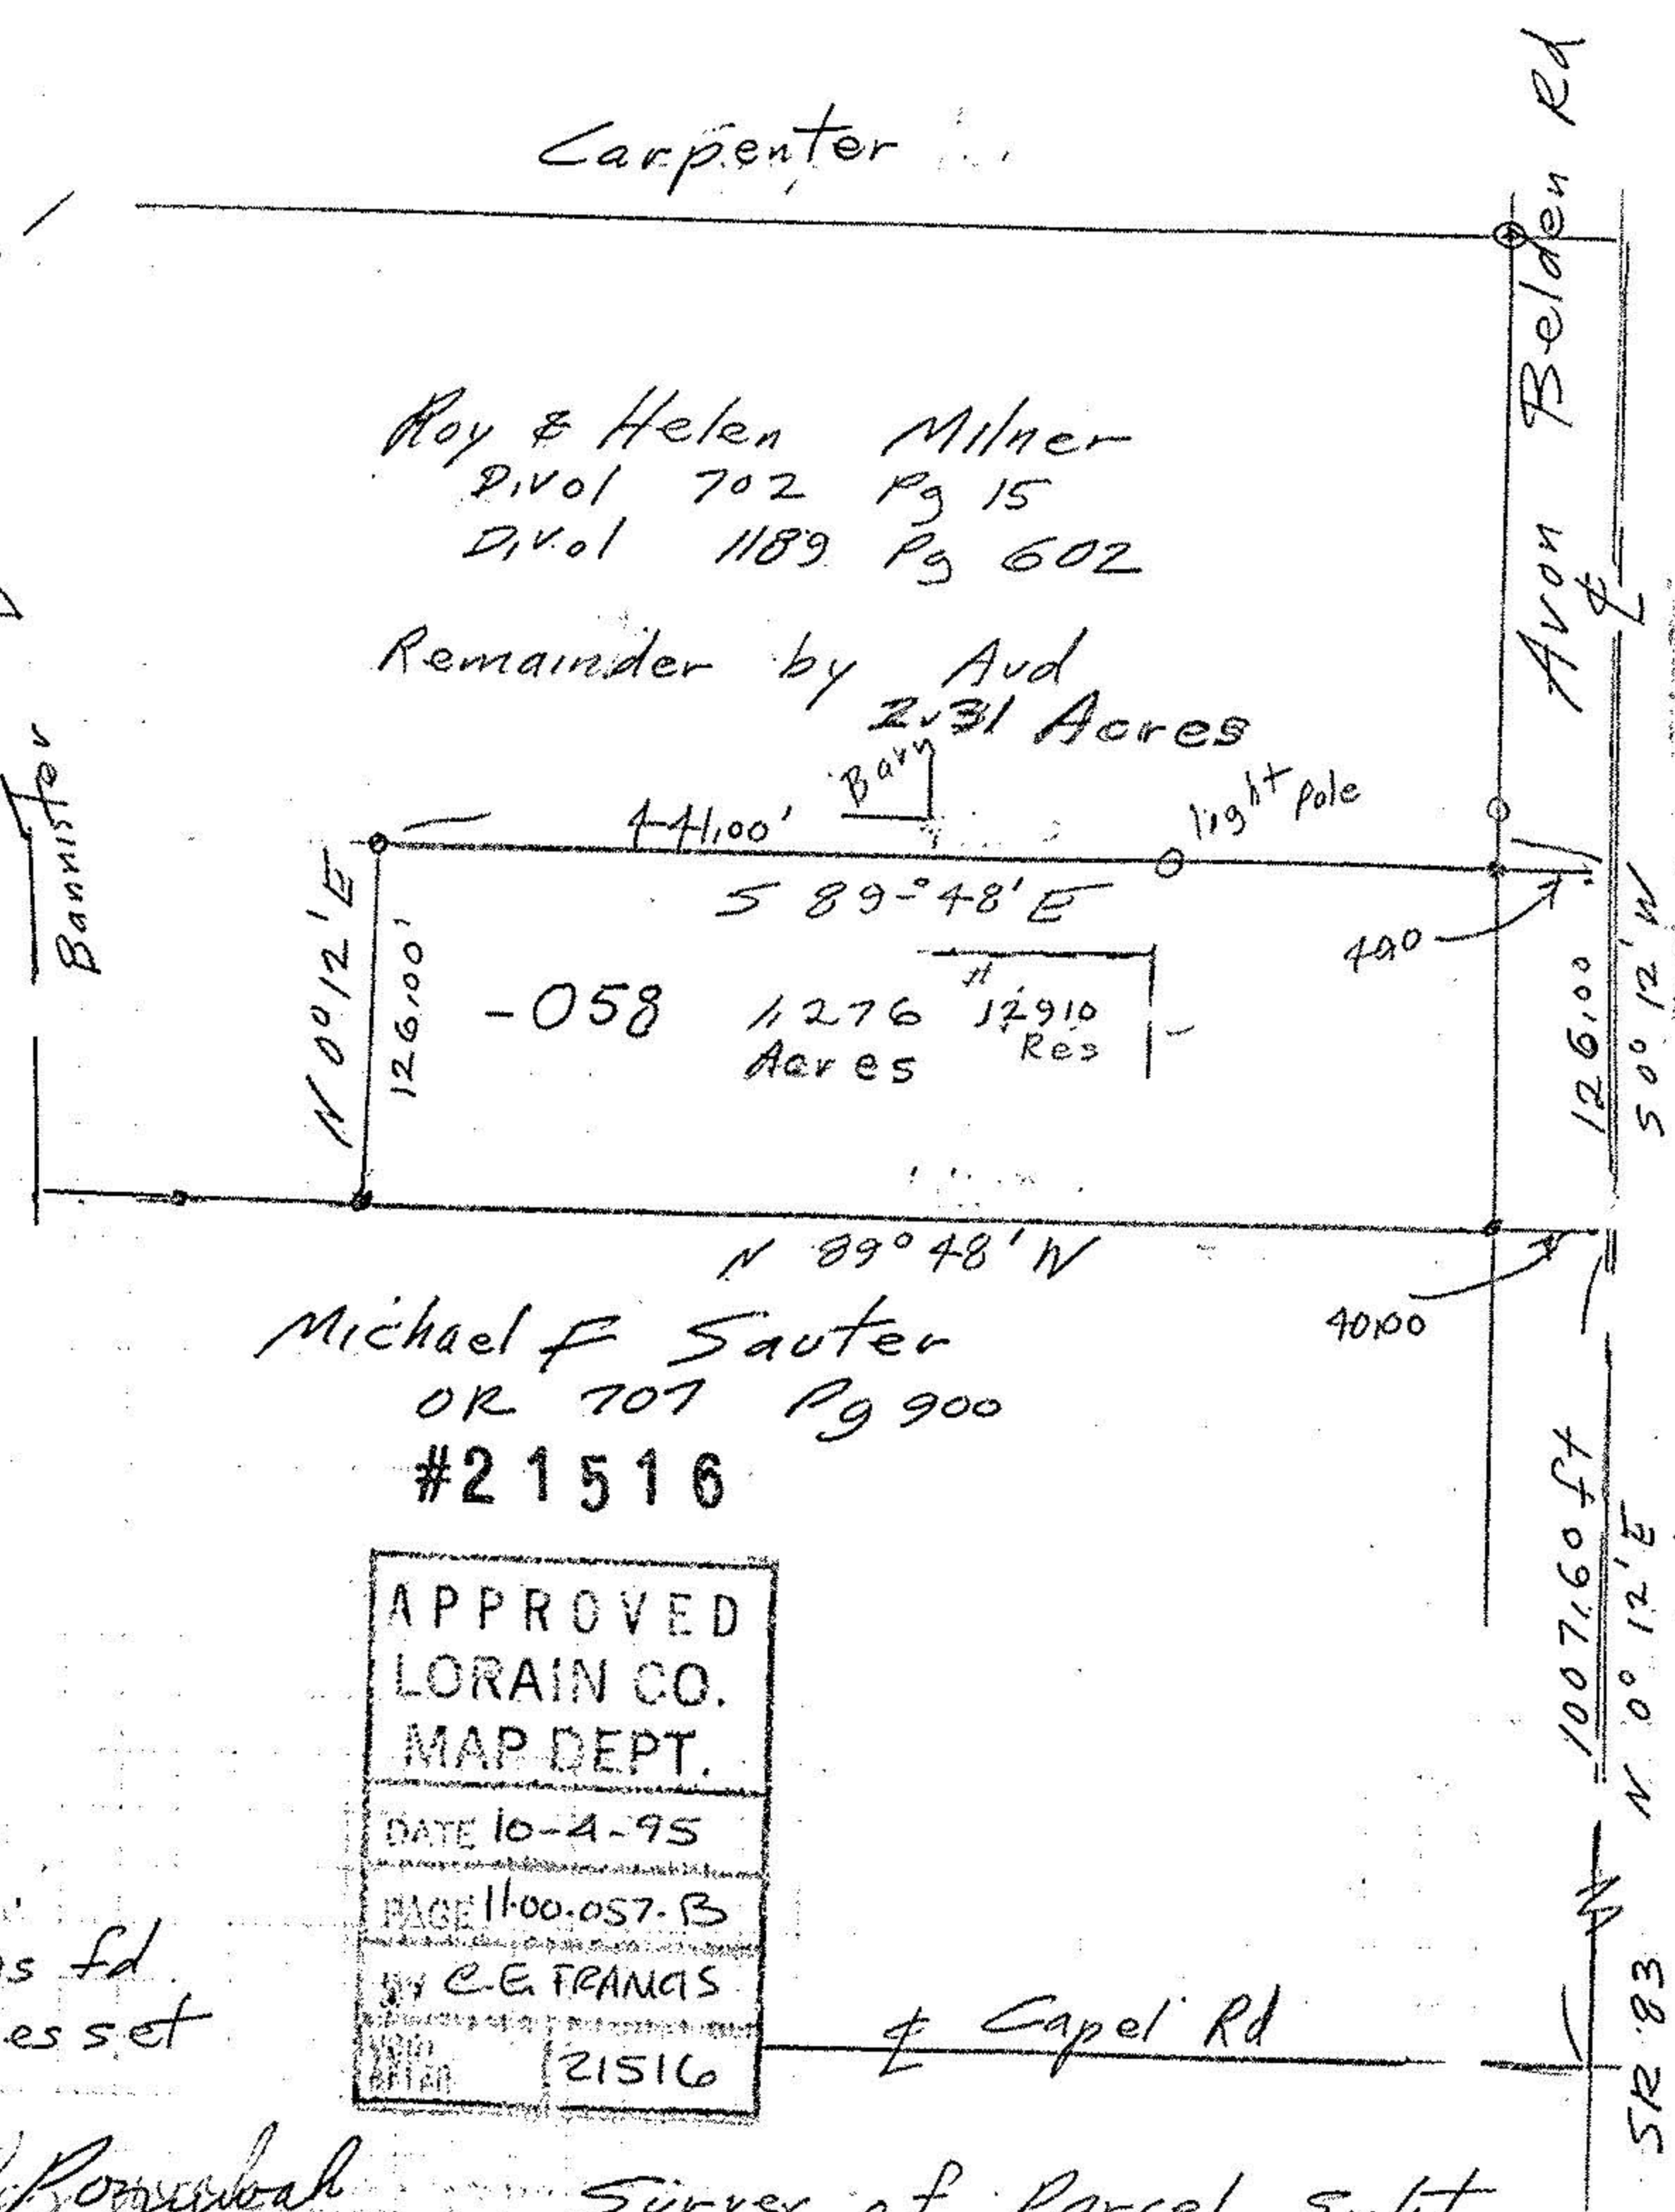 Carpenter
Avon Belden Rd
℄
Roy & Helen Milner
D.Vol 702 Pg 15
D.Vol 1189 Pg 602
Remainder by Aud
2.31 Acres
Barn
light pole
Bannister
441.00'
S 89° 48' E
N 0° 12' E
126.00'
-058
1.276
Acres
# 12910
Res
126.00
S 0° 12' W
N 89° 48' W
40.00
Michael F Sauter
OR 707 Pg 900
#21516
1007.60 ft
N 0° 12' E
APPROVED
LORAIN CO.
MAP DEPT.
DATE 10-4-95
PAGE 11.00.057.B
BY C.E. FRANCIS
21516
s fd
es set
℄ Capel Rd
SR 83
Survey of Parcel Split